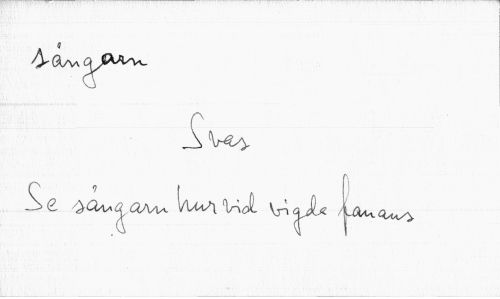 sångarn
Svas
Se sångarn hur vid vigda fanans